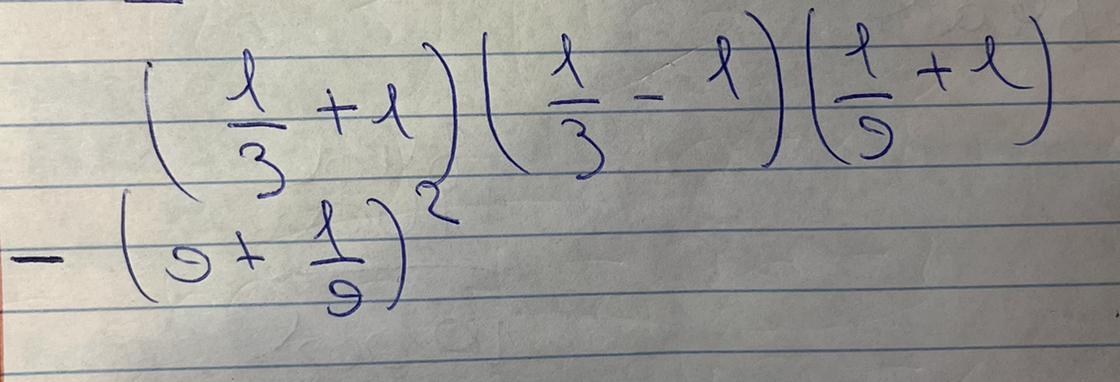 (1/3 + 1)(1/3 - 1)(1/9 + 1)
- (9 + 1/9)²